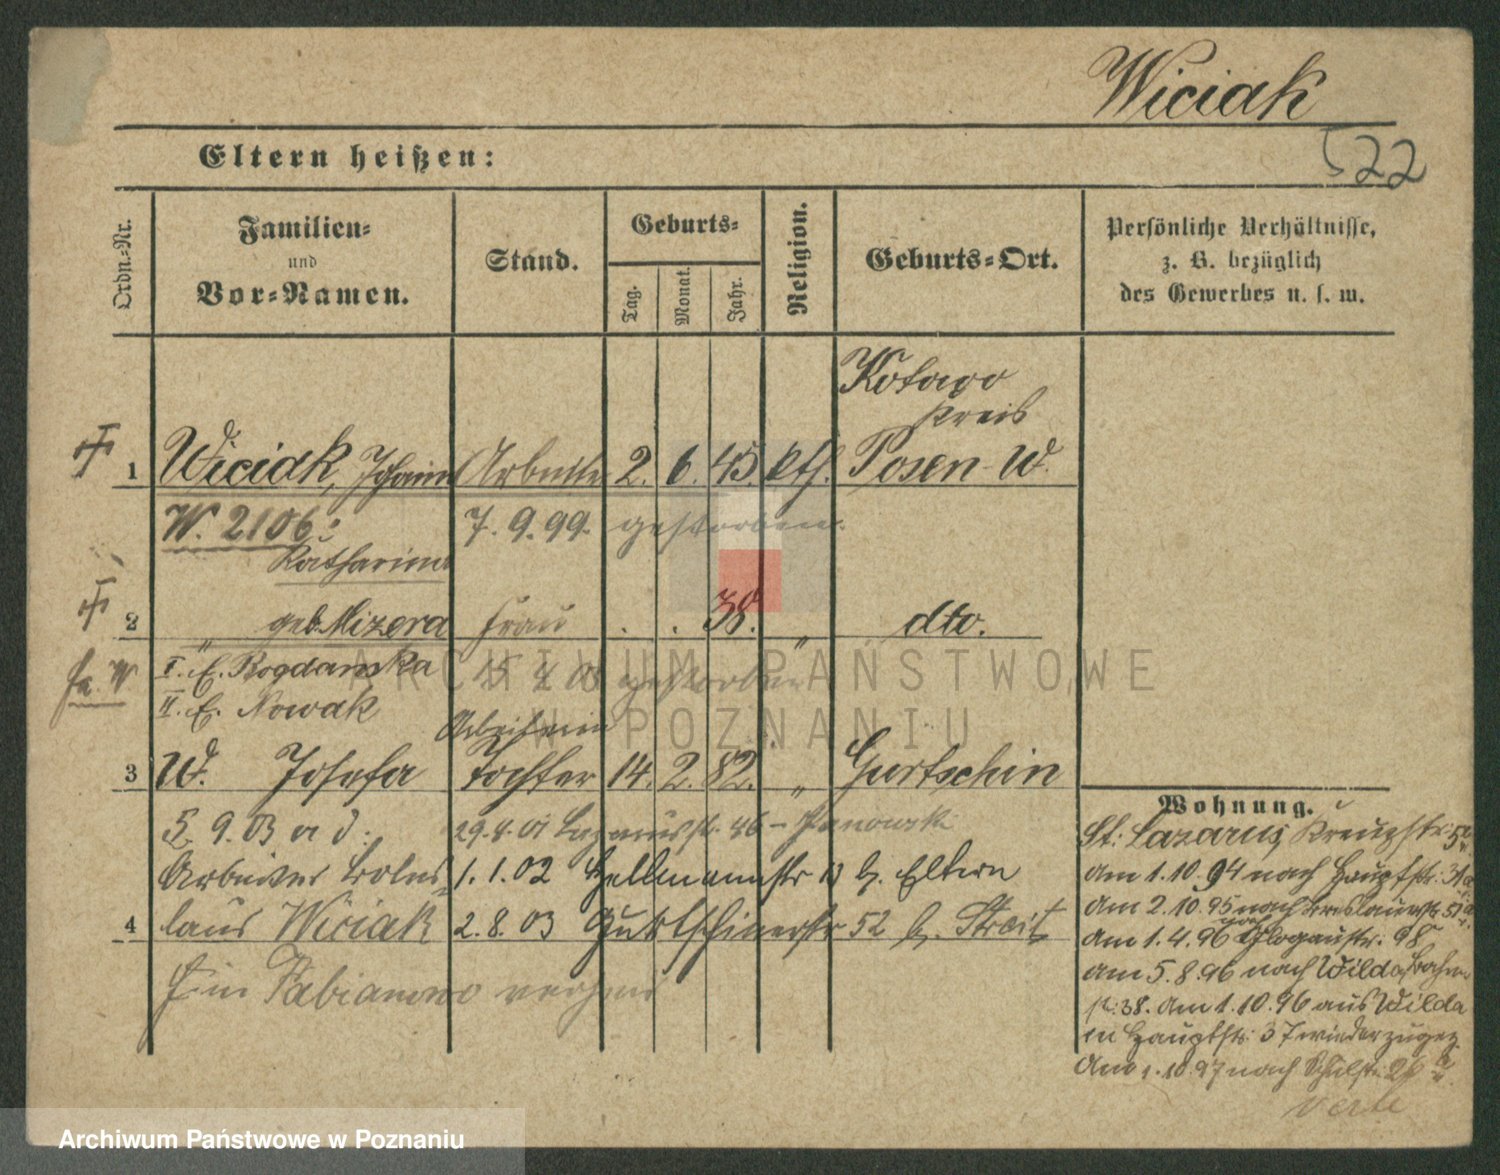 Wiciak
522
Eltern heißen:
Ordn.-Nr.
Familien-
und
Vor-Namen.
Stand.
Geburts-
Tag.
Monat.
Jahr.
Religion.
Geburts-Ort.
Persönliche Verhältnisse,
z. B. bezüglich
des Gewerbes u. s. w.
Kotowo
Kreis
1 Wiciak, Johann Arbeiter 2. 6. 45. kth. Posen-W.
W. 2106: 7. 9. 99. gestorben.
Katharina
2 " geb. Mizera Frau . . 38. " dto.
I. E. Bogdanska 15 4 03 gestorben
II. E. Nowak
Arbeiterin
3 W. Josefa Tochter 14. 2. 82. " Gurtschin
5. 9. 03 a d. 29.4.01 Lazarusstr. 46 – Panowski
Arbeiter Boles- 1.1.02 Hellmannstr 13 b. Eltern
4 laus Wiciak 2.8.03 Gurtschinerstr 52 b. Streit
in Fabianowo
Wohnung.
St: Lazarus, Kreuzstr: 5
Am 1.10.94 nach Hauptstr: 31a
Am 2.10.95 nach Breslauerstr 57a
Am 1.4.96 nach Glogaustr: 98
Am 5.8.96 nach Wilda, Bahn-
str: 38. Am 1.10.96 aus Wilda
in Hauptstr: 37 wieder zugez.
Am 1.10.97 nach Schulstr: 2
verte
ARCHIWUM PAŃSTWOWE
W POZNANIU
Archiwum Państwowe w Poznaniu